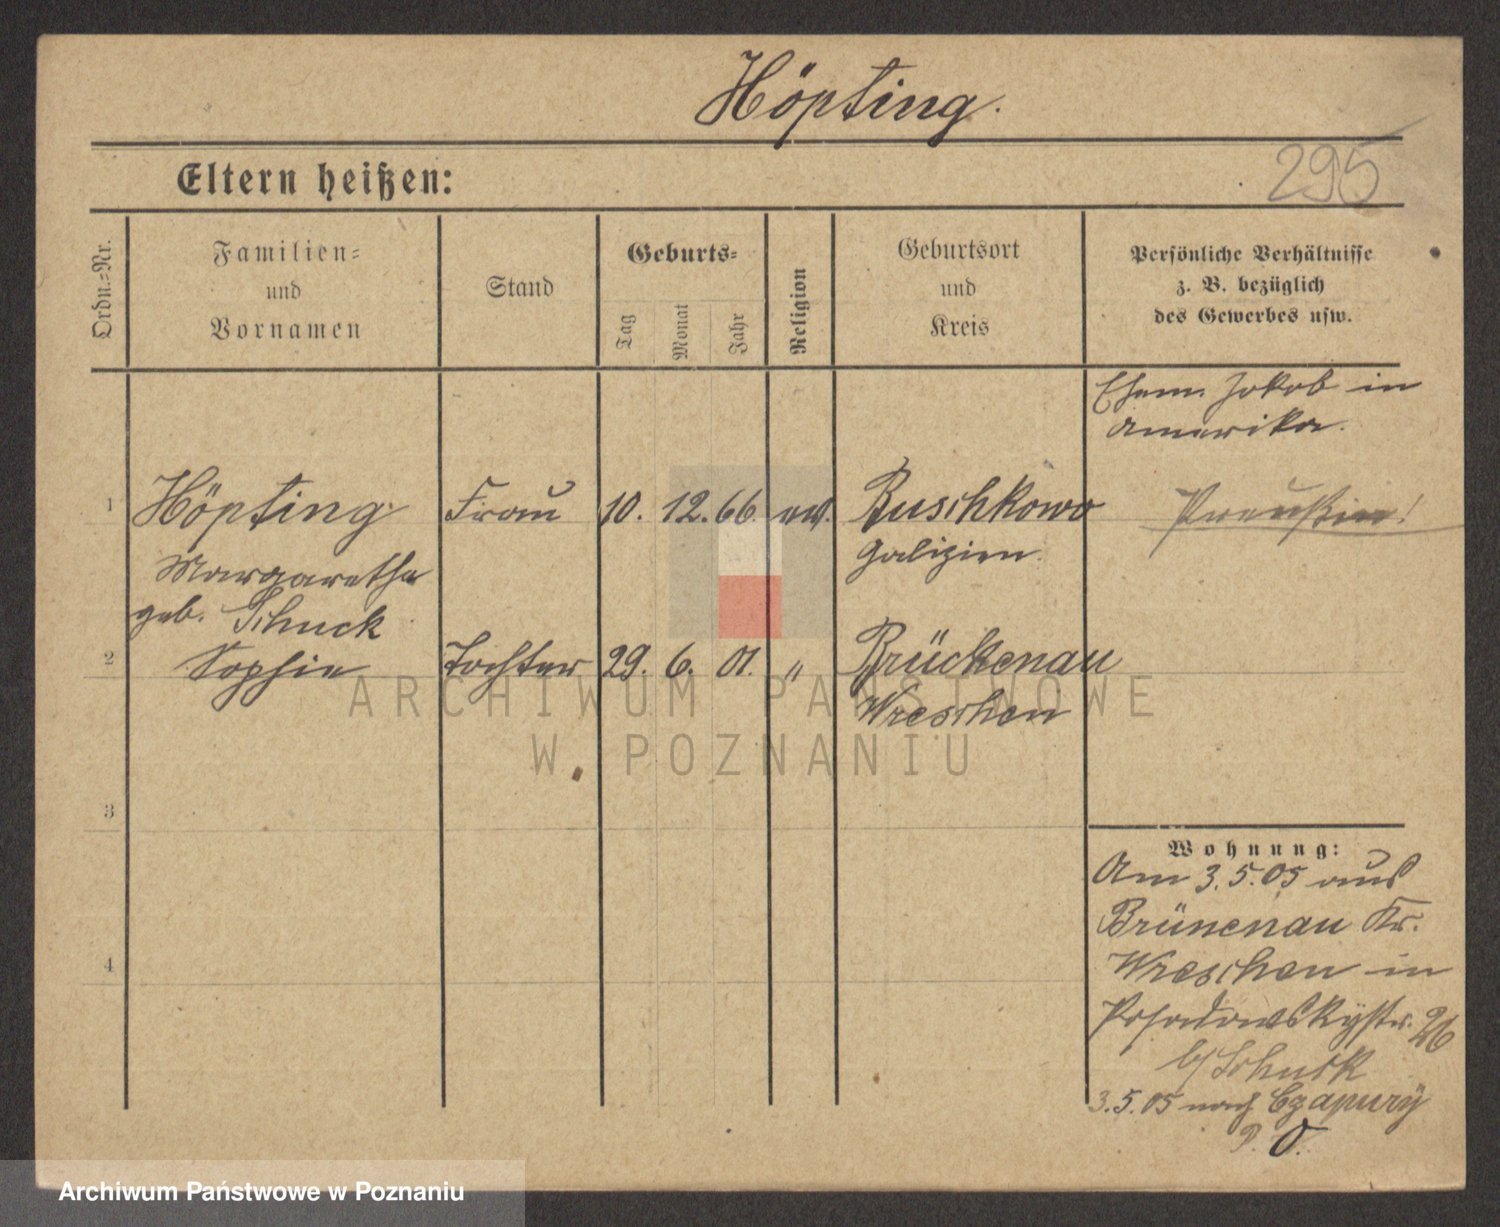 Höpting.
Eltern heißen:
295
Ordn.=Nr.
Familien=
und
Vornamen
Stand
Geburts=
Tag
Monat
Jahr
Religion
Geburtsort
und
Kreis
Persönliche Verhältnisse
z. B. bezüglich
des Gewerbes usw.
Ehem. Jakob in
Amerika.
1 Höpting Frau 10. 12. 66. ev. Buschkowo Preußin!
Margarethe Galizien.
geb. Schuck
2 Sophie Tochter 29. 6. 01. " Brückenau
Wreschen
3
4
Wohnung:
Am 3.5.05 aus
Brünenau Kr.
Wreschen in
Posadowskystr. 26
b/ Schuck
3.5.05 nach Czapury
P. O.
ARCHIWUM PAŃSTWOWE
W POZNANIU
Archiwum Państwowe w Poznaniu